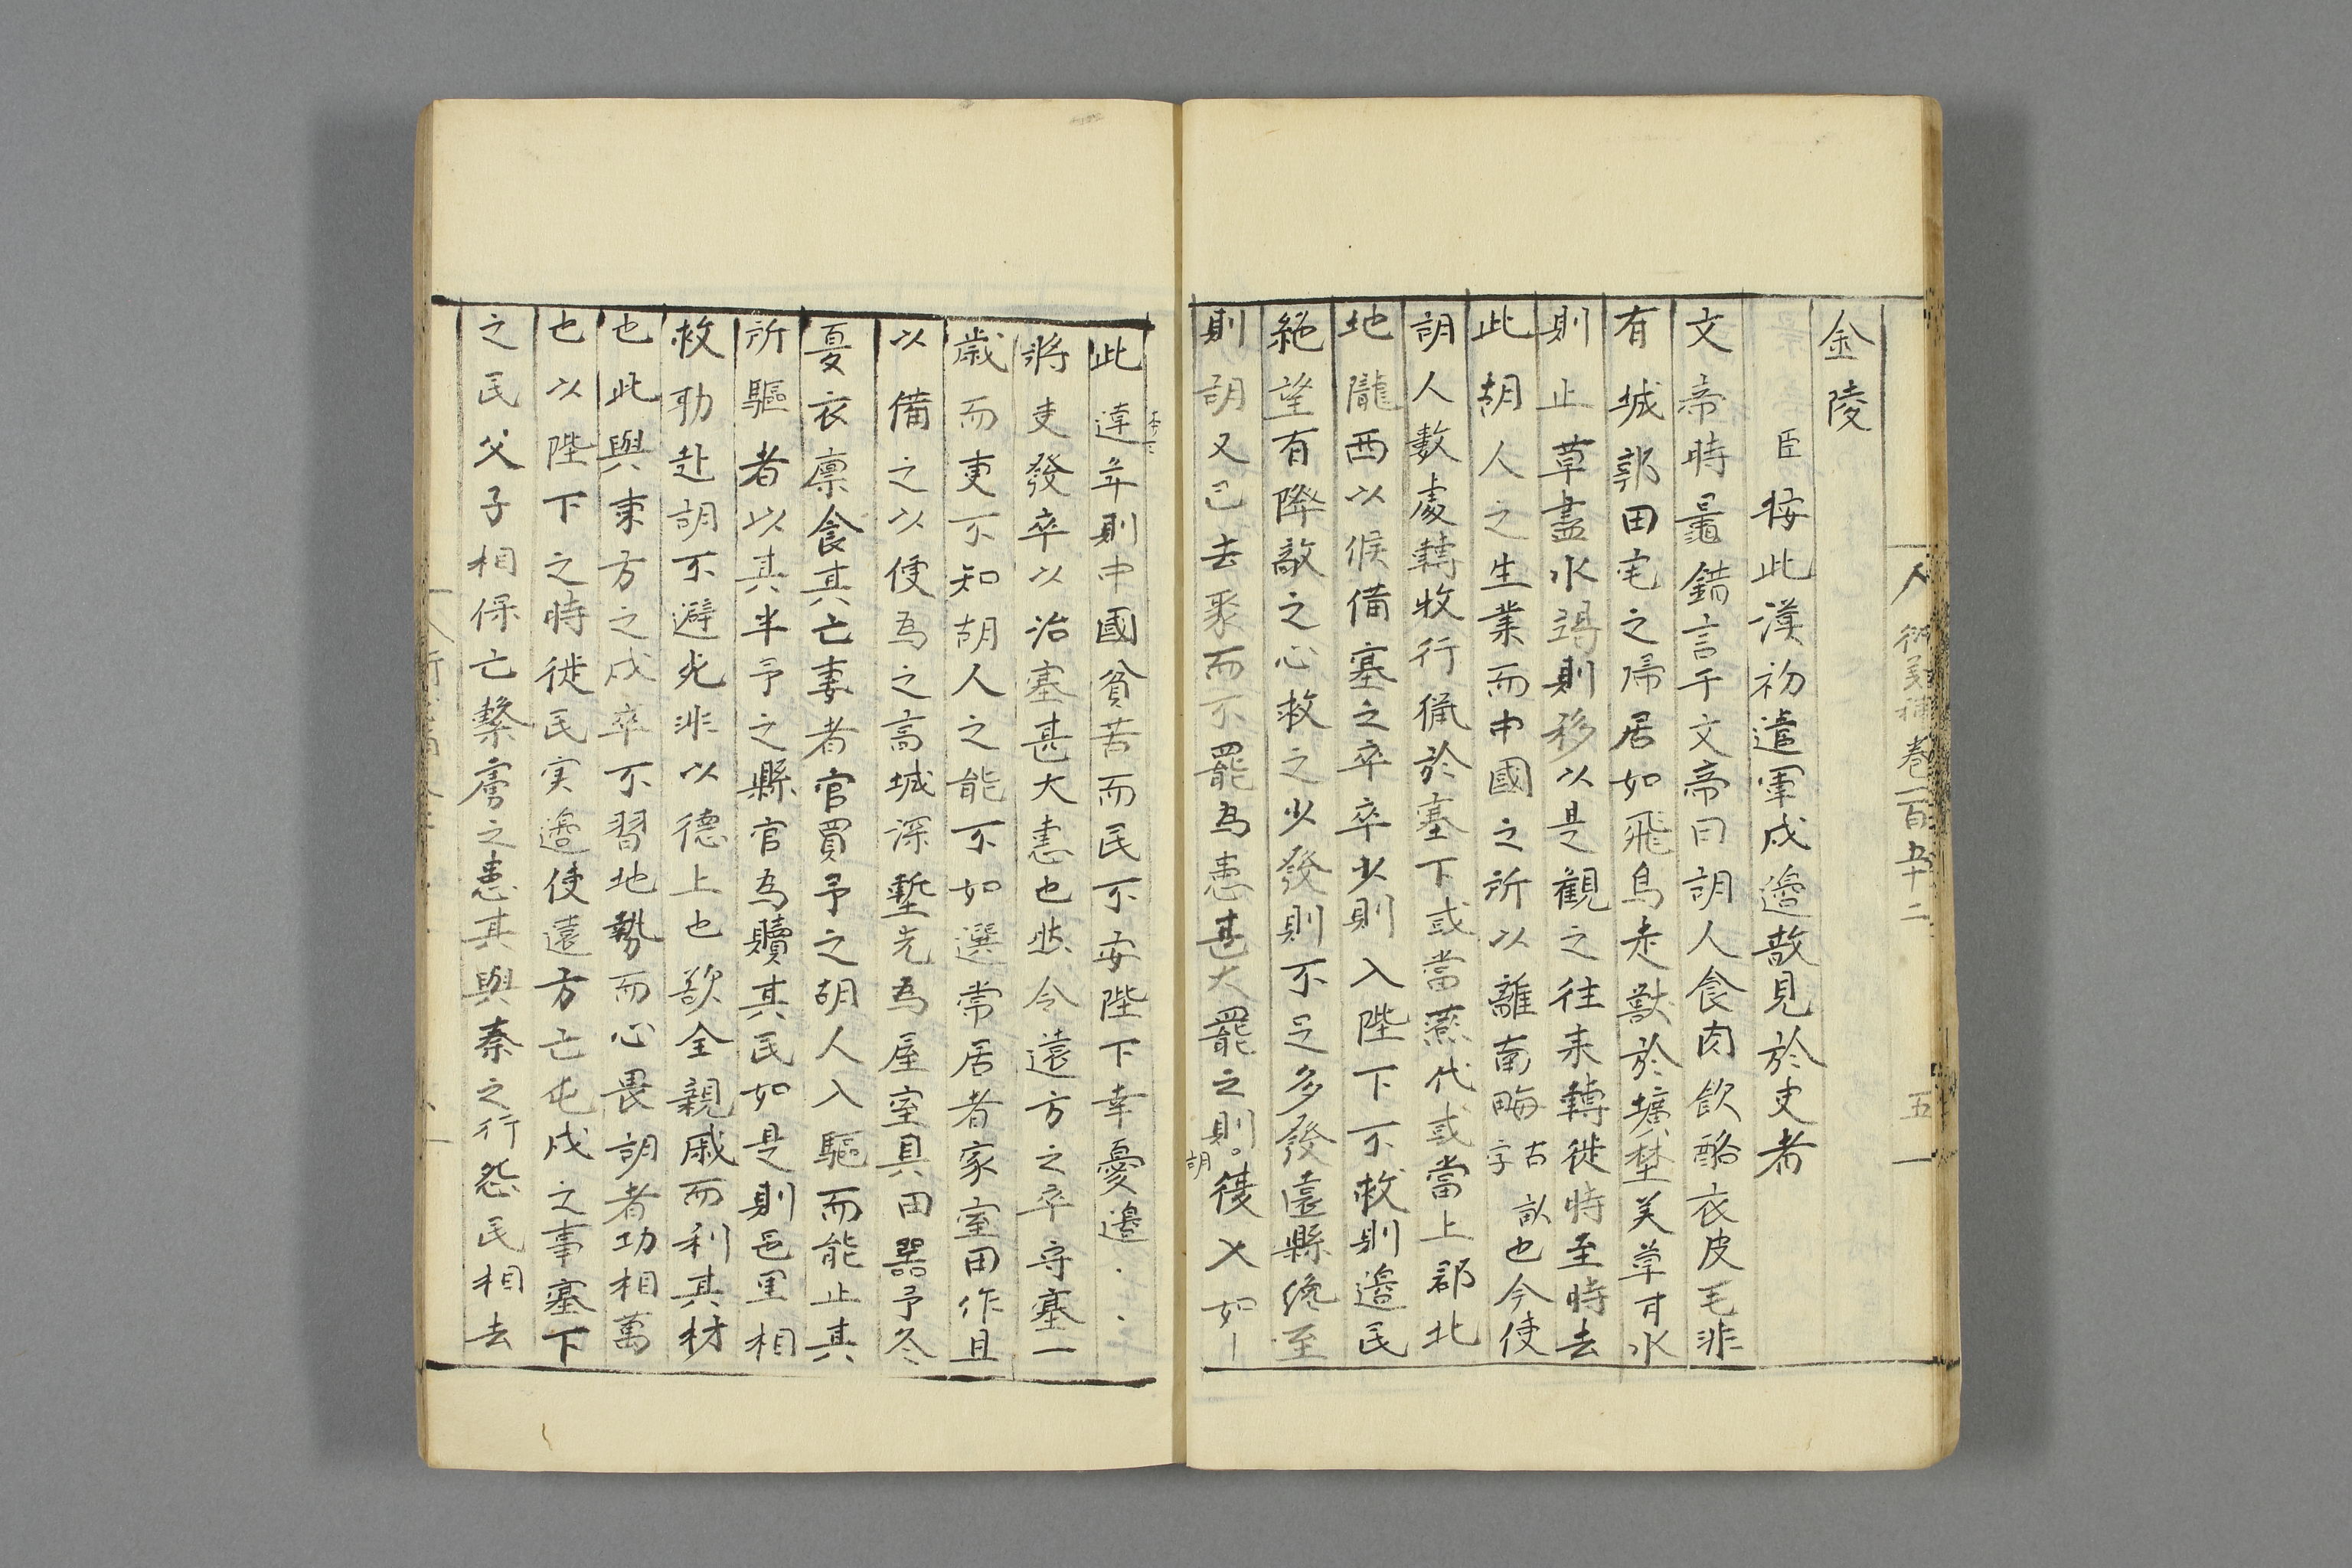 衍義補卷一百五十二 五一
金陵
臣按此漢初遣軍戍邉散見於吏者
文帝時鼂錯言于文帝曰胡人食肉飲酪衣皮毛非
有城郭田宅之歸居如飛鳥走獸於壙埜美草甘水
則止草盡水竭則移以是觀之往来轉徙時至時去
此胡人之生業而中國之所以離南畮古字畝也今使
胡人數處轉牧行獵於塞下或當燕代或當上郡北
地隴西以候備塞之卒卒少則入陛下不救則邉民
絶望有降敵之心救之少發則不足多發遠縣纔至
則胡又已去聚而不罷為患甚大罷之則胡復入如
此違年則中國貧苦而民不安陛下幸憂邉
將吏發卒以治塞甚大惠也然令遠方之卒守塞一
歳而更不知胡人之能不如選常居者家室田作且
以備之以便為之高城深塹先為屋室具田器予冬
夏衣廪食其亡妻者官買予之胡人入驅而能止其
所驅者以其半予之縣官為贖其民如是則邑里相
救助赴胡不避死非以德上也欲全親戚而利其材
也此與東方之戍卒不習地勢而心畏胡者功相萬
也以陛下之時徙民実邉使遠方亡屯戍之事塞下
之民父子相保亡繫虜之患其與秦之行怨民相去